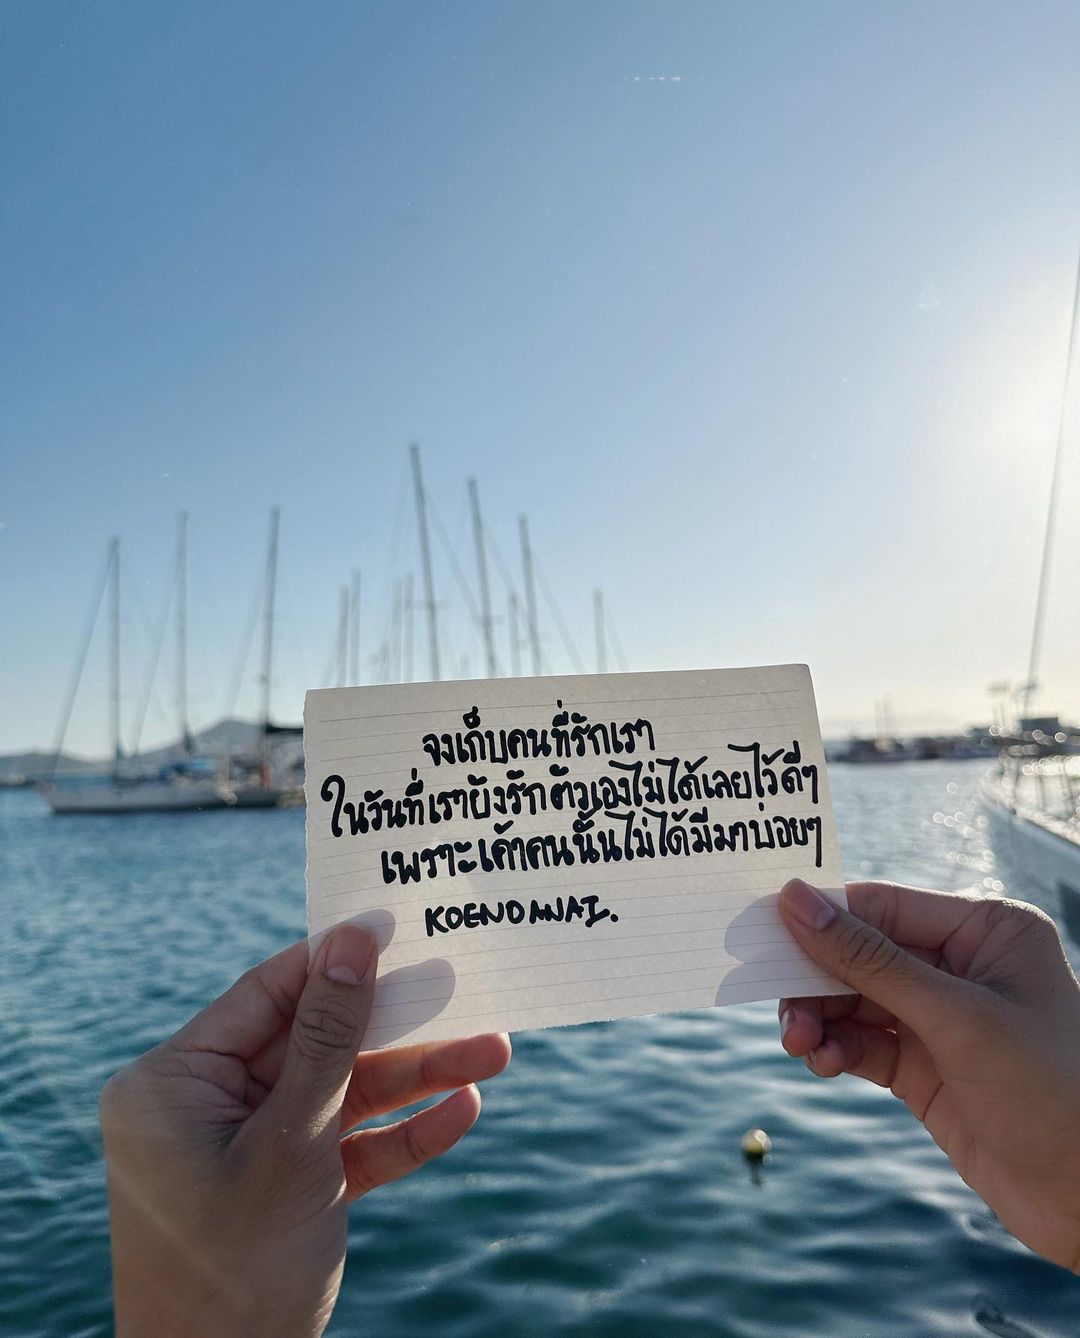 จงเก็บคนที่รักเรา
ในวันที่เรายังรักตัวเองไม่ได้เลยไว้ดีๆ
เพราะเค้าคนนั้นไม่ได้มีมาบ่อยๆ
KOENDANAI.